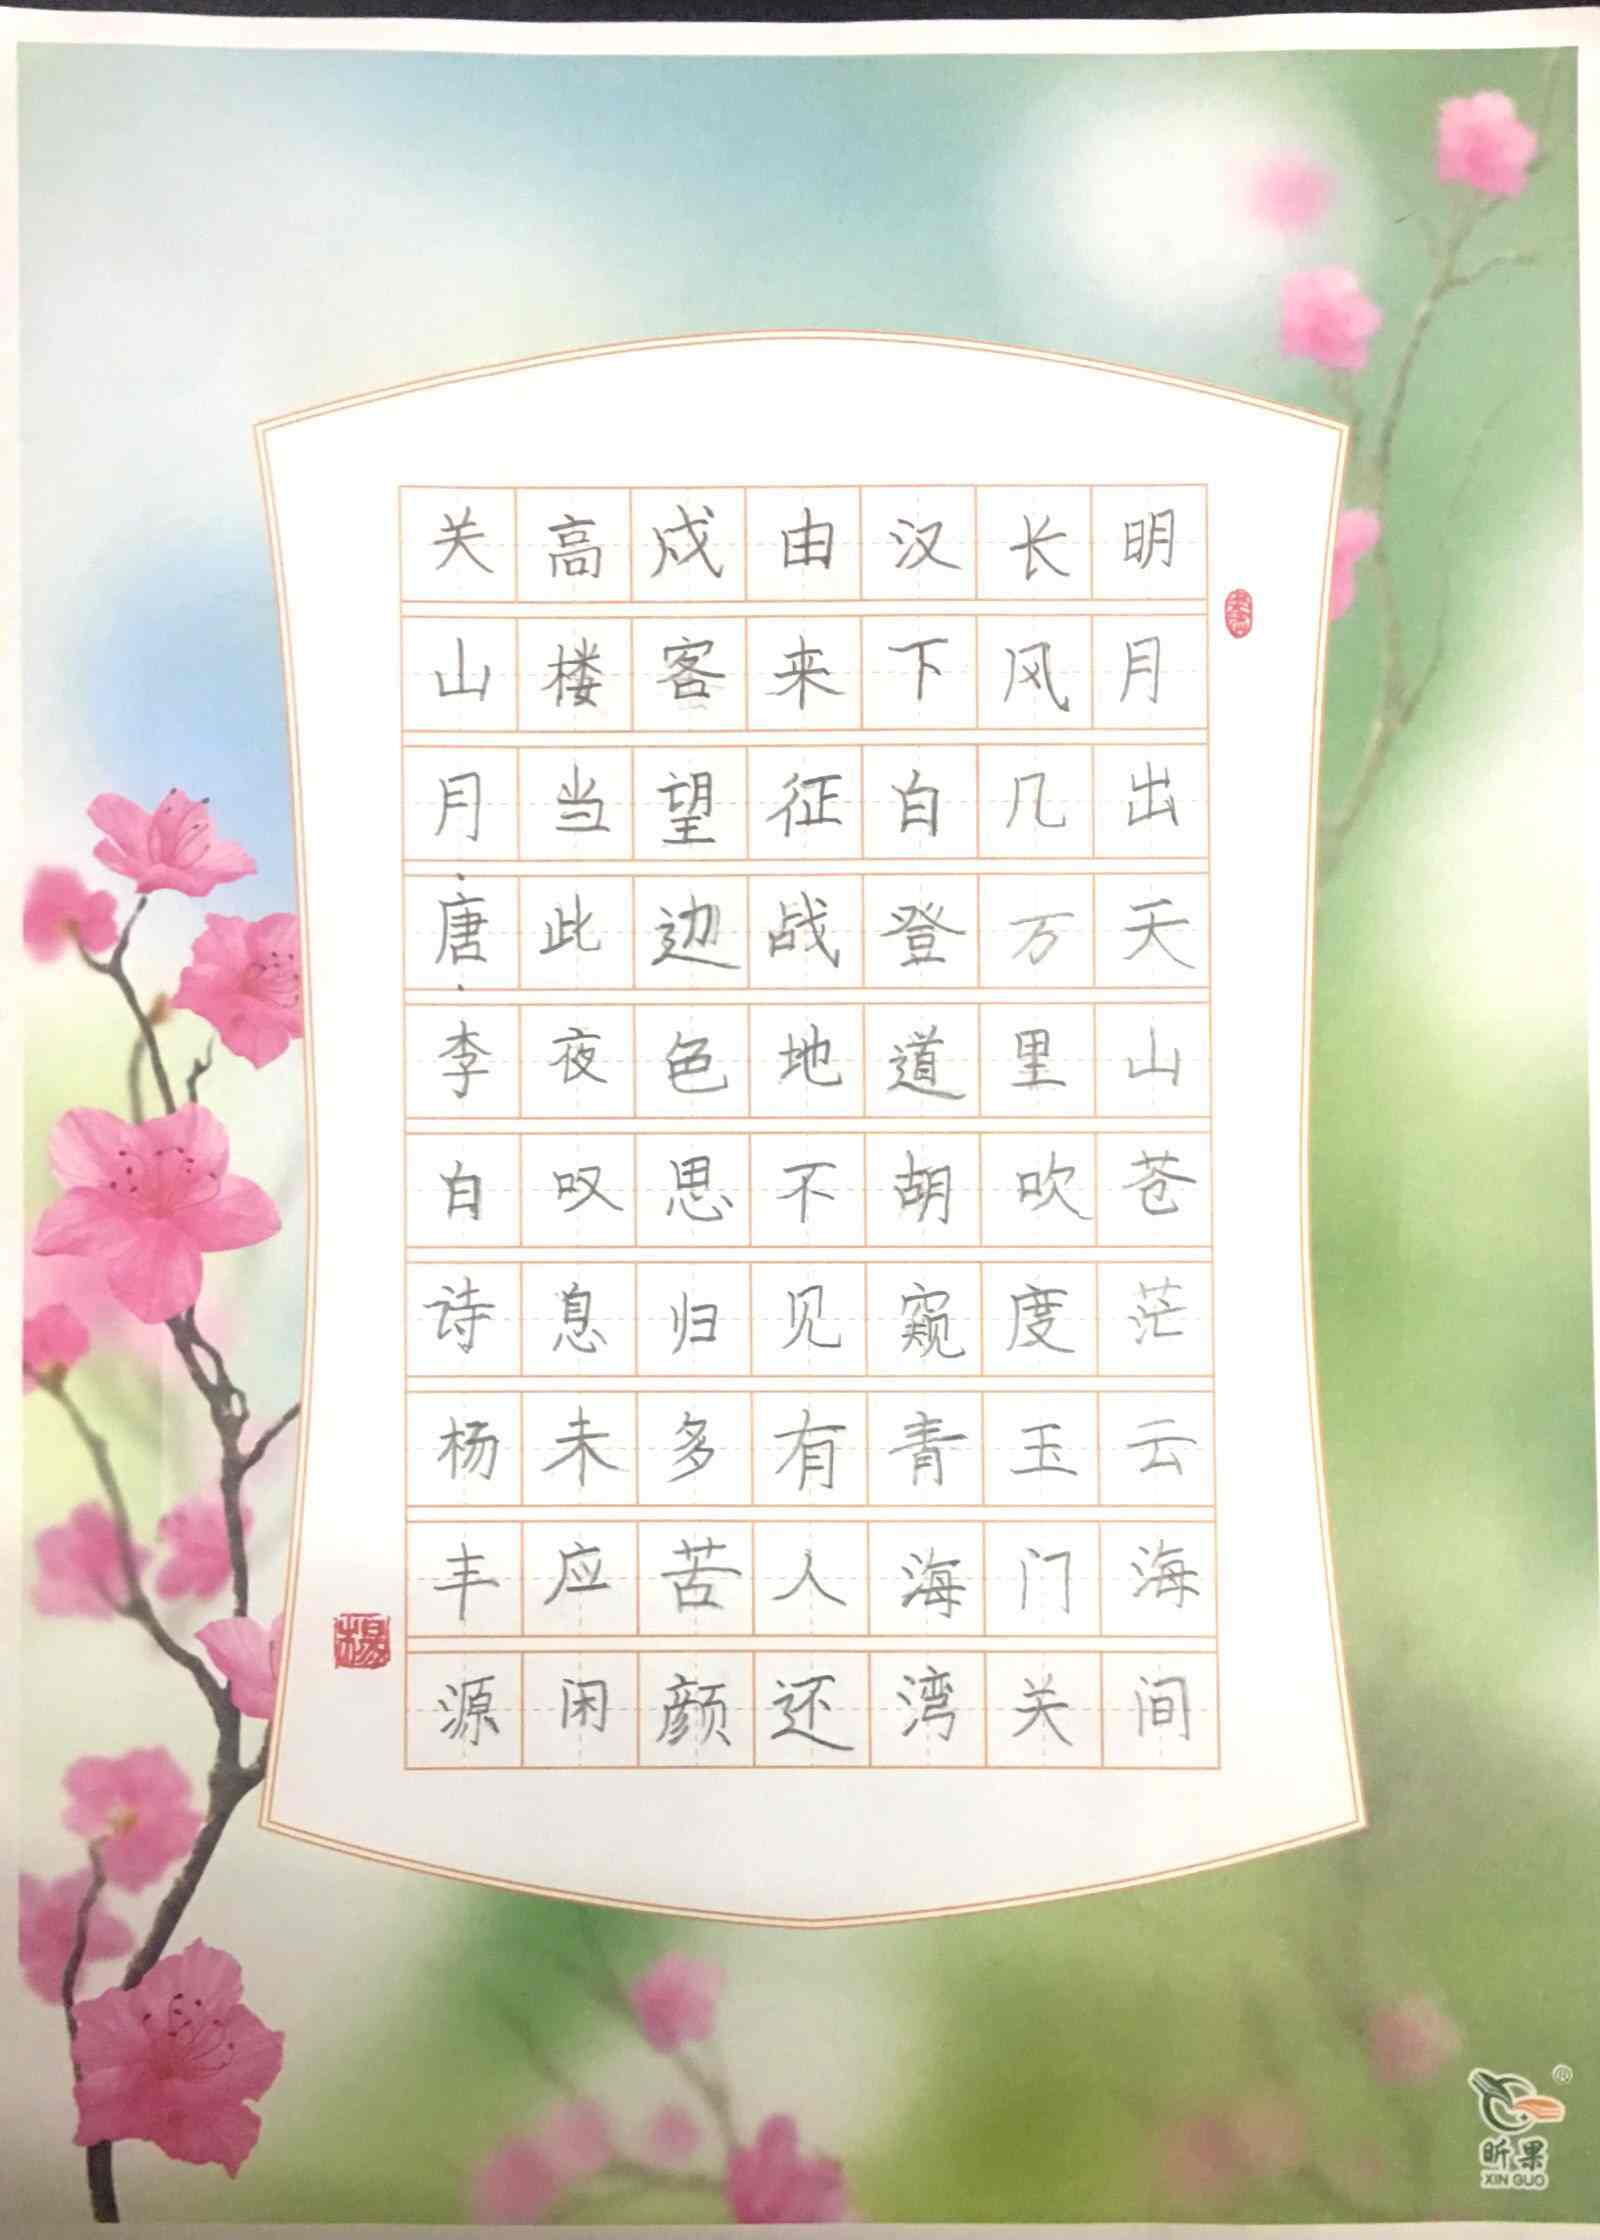 明月出天山苍茫云海间
长风几万里吹度玉门关
汉下白登道胡窥青海湾
由来征战地不见有人还
戍客望边色思归多苦颜
高楼当此夜叹息未应闲
关山月·唐·李白诗杨丰源
楊
昕果
XIN GUO
®